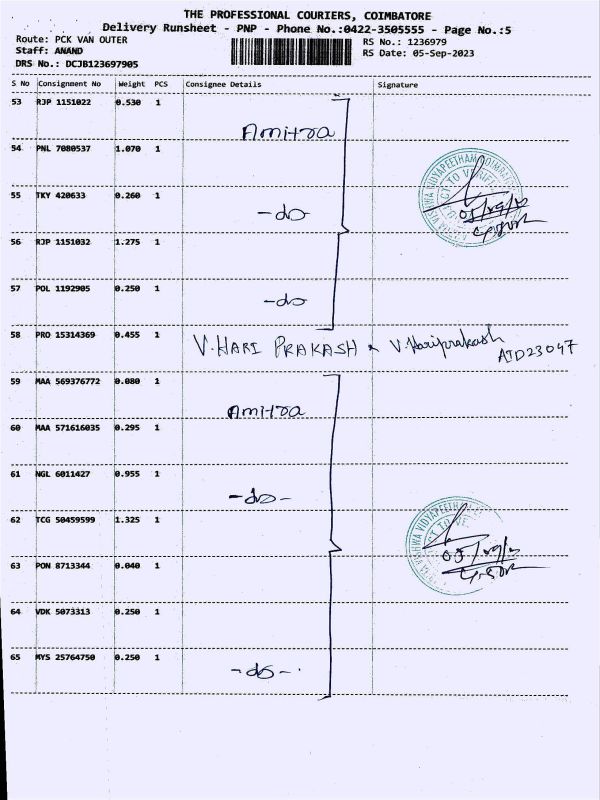 THE PROFESSIONAL COURIERS, COIMBATORE
Delivery Runsheet - PNP - Phone No.:0422-3505555 - Page No.:5
Route: PCK VAN OUTER
RS No.: 1236979
Staff: ANAND
RS Date: 05-Sep-2023
DRS No.: DCJB123697905
S No Consignment No Weight PCS Consignee Details Signature
53 RJP 1151022 0.530 1
Amitra
54 PNL 7080537 1.070 1
55 TKY 420633 0.260 1
-do-
56 RJP 1151032 1.275 1
57 POL 1192905 0.250 1
-do-
58 PRO 15314369 0.455 1 V.HARI PRAKASH V.Hariprakash
AID23047
59 MAA 569376772 0.080 1
Amitra
60 MAA 571616035 0.295 1
61 NGL 6011427 0.955 1
-do-
62 TCG 50459599 1.325 1
63 PON 8713344 0.040 1
64 VDK 5073313 0.250 1
65 MYS 25764750 0.250 1
-do-